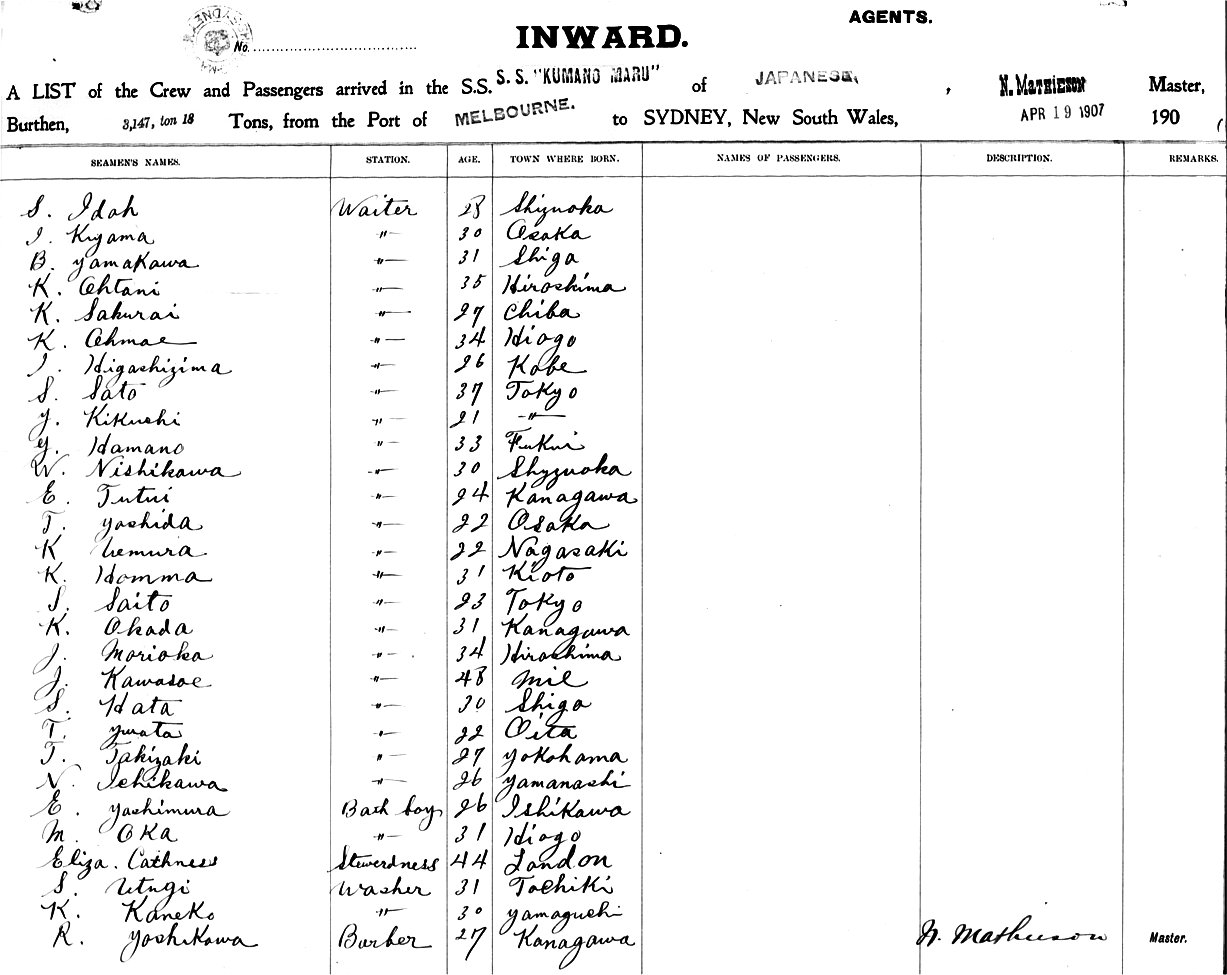 AGENTS.
No. INWARD.
A LIST of the Crew and Passengers arrived in the S.S. S. S. "KUMANO MARU" of JAPANESE, , N. MATHIESON Master,
Burthen, 3,147, ton 18 Tons, from the Port of MELBOURNE. to SYDNEY, New South Wales, APR 19 1907 190
SEAMEN'S NAMES. STATION. AGE. TOWN WHERE BORN. NAMES OF PASSENGERS. DESCRIPTION. REMARKS.
S. Idoh Waiter 28 Shizuoka
I. Kiyama " 30 Osaka
B. Yamakawa " 31 Shiga
K. Ohtani " 35 Hiroshima
K. Sakurai " 27 Chiba
K. Ohmae " 34 Hiogo
I. Higashizima " 26 Kobe
S. Sato " 37 Tokyo
Y. Kikuchi " 21 "
Y. Hamano " 33 Fukui
W. Nishikawa " 30 Shyzuoka
E. Tutui " 24 Kanagawa
T. Yoshida " 22 Osaka
K Uemura " 22 Nagasaki
K. Homma " 31 Kioto
S. Saito " 23 Tokyo
K. Okada " 31 Kanagawa
J. Morioka " 34 Hiroshima
J. Kawasoe " 48 Mie
S. Hata " 30 Shiga
T. Ywata " 22 Oita
T. Takizaki " 27 Yokohama
N. Ichikawa " 26 Yamanashi
E. Yoshimura Bath boy 26 Ishikawa
M. OKA " 31 Hiogo
Eliza. Cathness Stewerdness 44 London
S. Utugi Washer 31 Tochiki
K. Kaneko " 30 Yamaguchi
R. Yoshikawa Barber 27 Kanagawa N. Mathieson Master.